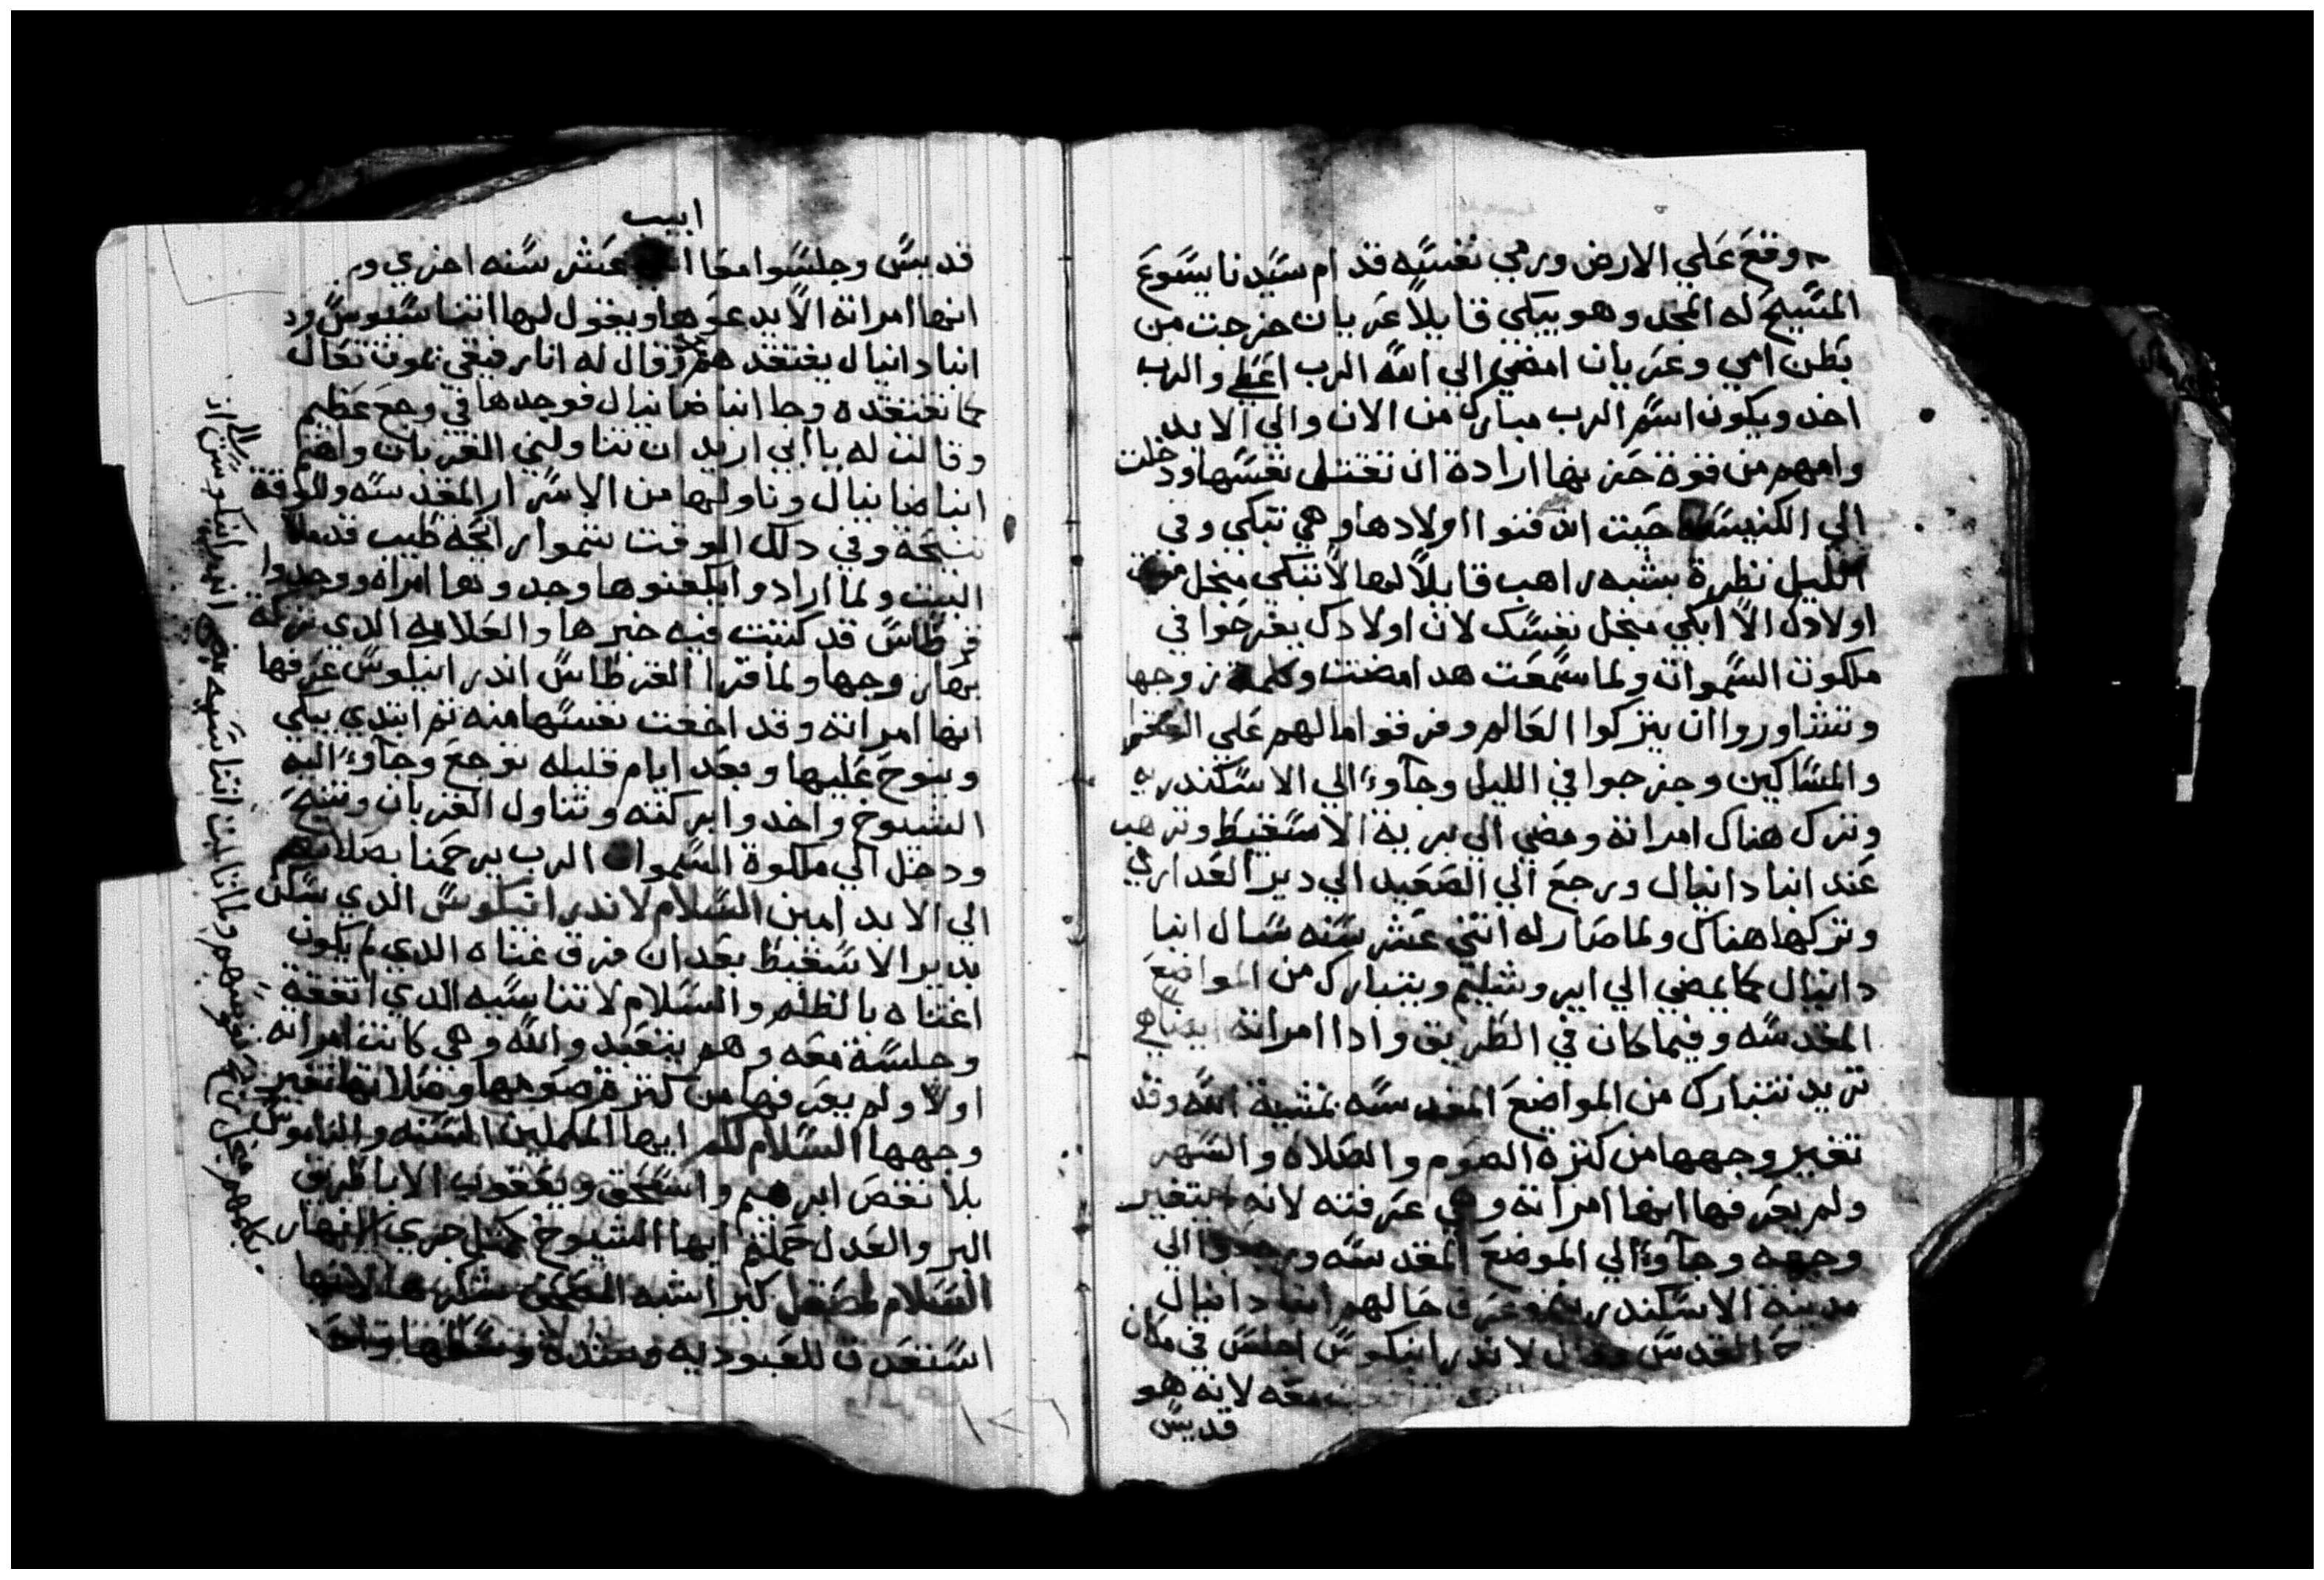 وقع علي الارض ورمي نفسه قدام سيدنا يسوع
المسيح له المجد وهو يبكي قايلاً عريان خرجت من
بطن امي وعريان امضي الي الله الرب اعطي والرب
اخد ويكون اسم الرب مبارك من الان والي الابد
وامهم من قوة حزنها ارادة ان تقتل نفسها ودخلت
الي الكنيسه حيت اندفنوا اولادها وهي تبكي وفي
الليل نظرة بشبه راهب قايلاً لها لا تبكي منجل موت
اولادك الا ابكي منجل نفسك لان اولادك يفرحوا في
ملكوت السموات ولما سمعت هدا امضت وكلمة زوجها
وتشاوروا ان يتركوا العالم وفرقوا مالهم علي
والمساكين وخرجوا في الليل وجاوء الي الاسكندريه
وترك هناك امراته ومضي الي برية الاسقيط وترهب
عند انبا دانيال ورجع الي الصعيد الي دير العداري
وتركها هناك ولما صار له اتني عشر سنه سال انبا
دانيال كما يمضي الي ايروشليم ويتبارك من المواضع
المقدسه وفيما كان في الطريق وادا امراته ايضا هي
تريد تتبارك من المواضع المقدسه بمشية الله وقد
تغير وجهها من كترة الصوم والصلاه والسهر
ولم يعرفها انها امراته وهي عرفته لانه لم يتغير
وجهه وجاوء الي الموضع المقدسه ورجعوا الي
مدينة الاسكندريه وعرف حالهم انبا دانيال
القدس وقال لاندرانيكوس اجلس في مكان
معه لانه هو
قديس
ابيب
قديس وجلسوا معا عشر سنه اخري ولم
انها امراته الا يدعوها ويقول لها اتناسيوس
انبا دانيال يفتقدهم وقال له انا رفيقي يموت تعال
كما تفتقده وجا انبا ضانيال فوجدها في وجع عظيم
وقالت له يا ابي اريد ان تناولني القربان واهتم
انبا ضانيال وناولها من الاسرار المقدسه وللوقة
تنيحة وفي دلك الوقت شموا رائحة طيب قد ملا
البيت ولما ارادوا يكفنوها وجدوها امراه ووجدوا
قرطاس قد كتبت فيه خبرها والعلامه الدي تركة
بها زوجها ولما قرا القرطاس اندرانيلوس عرفها
انها امراته وقد اخفت نفسها منه تم ابتدي يبكي
وينوح عليها وبعد ايام قليله توجع وجاوء اليه
الشيوخ واخدوا بركته وتناول القربان وتنيح
ودخل الي ملكوة السموات الرب يرحمنا بصلاتهم
الي الابد امين السلام لاندرانيكوس الدي سكن
بدير الاسقيط بعد ان فرق غناه الدي لم يكون
اغتناه بالظلم والسلام لاتناسيه الدي اتفقة
وجلسة معه وهم بتعبد والله وهي كانت امراته
اولا ولم يعرفها من كترة صومها وصلاتها تغير
وجهها السلام لكم ايها المكملين السنه والناموس
بلا نقص ابرهيم واسحق ويعقوب الابا طرق
البر والعدل حملتم ايها الشيوخ كمتل جري الانهار
استعدت للعبوديه